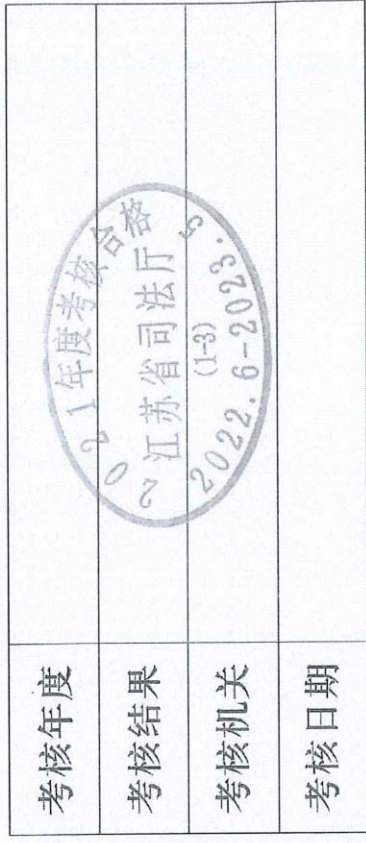 考核年度
考核结果
考核机关
考核日期
2021年度考核合格
江苏省司法厅
(1-3)
2022.6-2023.5